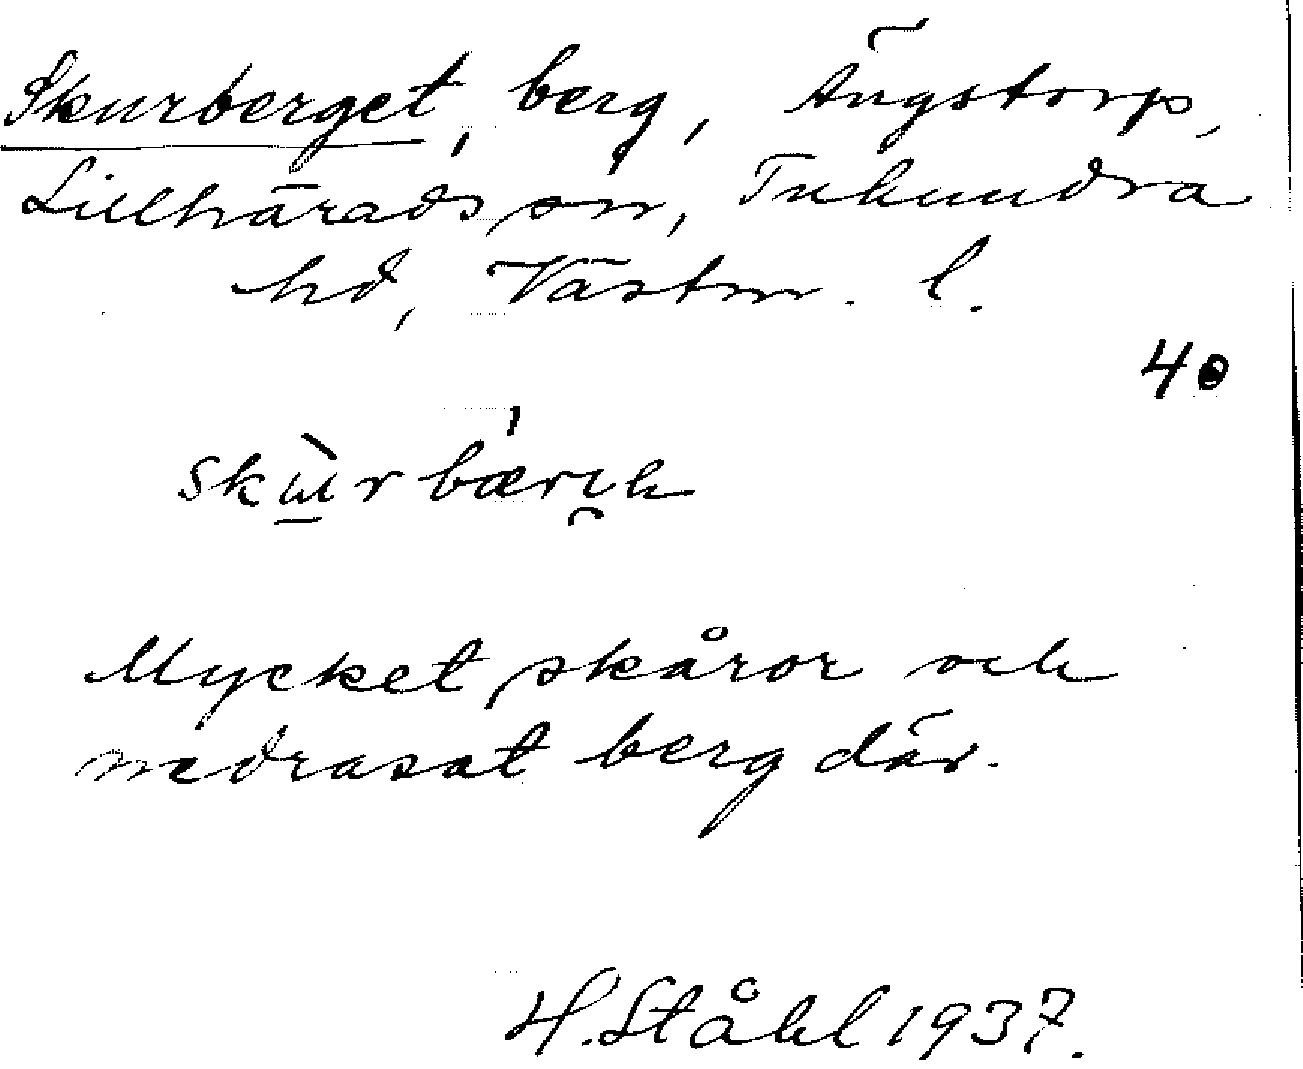 Skurberget, berg, Ängstorp,
Lillhärads sn, Tuhundra
hd, Västm. l.
40
Mycket skåror och
nedrasat berg där.
H. Ståhl 1937.